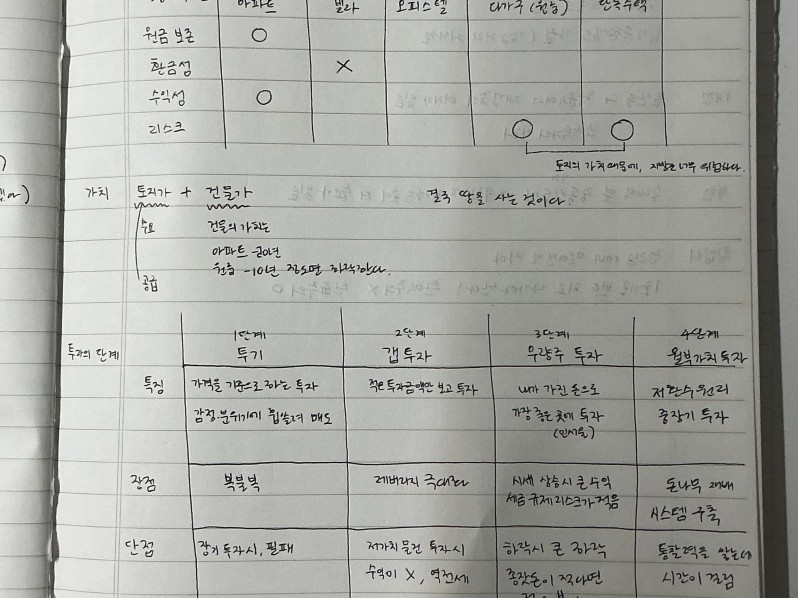 아파트 빌라 오피스텔 다가구(원룸) 단독주택
원금 보존 ○
환금성 ×
수익성 ○
리스크 ○ ○
토지의 가치 때문에, 지방은 너무 위험하다.
가치 토지가 + 건물가 결국 땅을 사는 것이다.
수요 건물의 가치는
아파트 -20년
원룸 -10년 정도면 하락한다.
공급
1단계 2단계 3단계 4단계
투자의 단계 투기 갭 투자 우량주 투자 월부가치투자
특징 가격을 기준으로 하는 투자 적은 투자금액만 보고 투자 내가 가진 돈으로 저환수원리
감정·분위기에 휩쓸려 매도 가장 좋은 곳에 투자 중장기 투자
(인서울)
장점 복불복 레버리지 극대화 시세 상승시 큰 수익 돈나무 재배
세금 규제 리스크가 적음 시스템 구축
단점 장기 투자시, 필패 저가치 물건 투자시 하락시 큰 하락 통찰력을 쌓는데
수익이 X, 역전세 종잣돈이 적다면 시간이 걸림